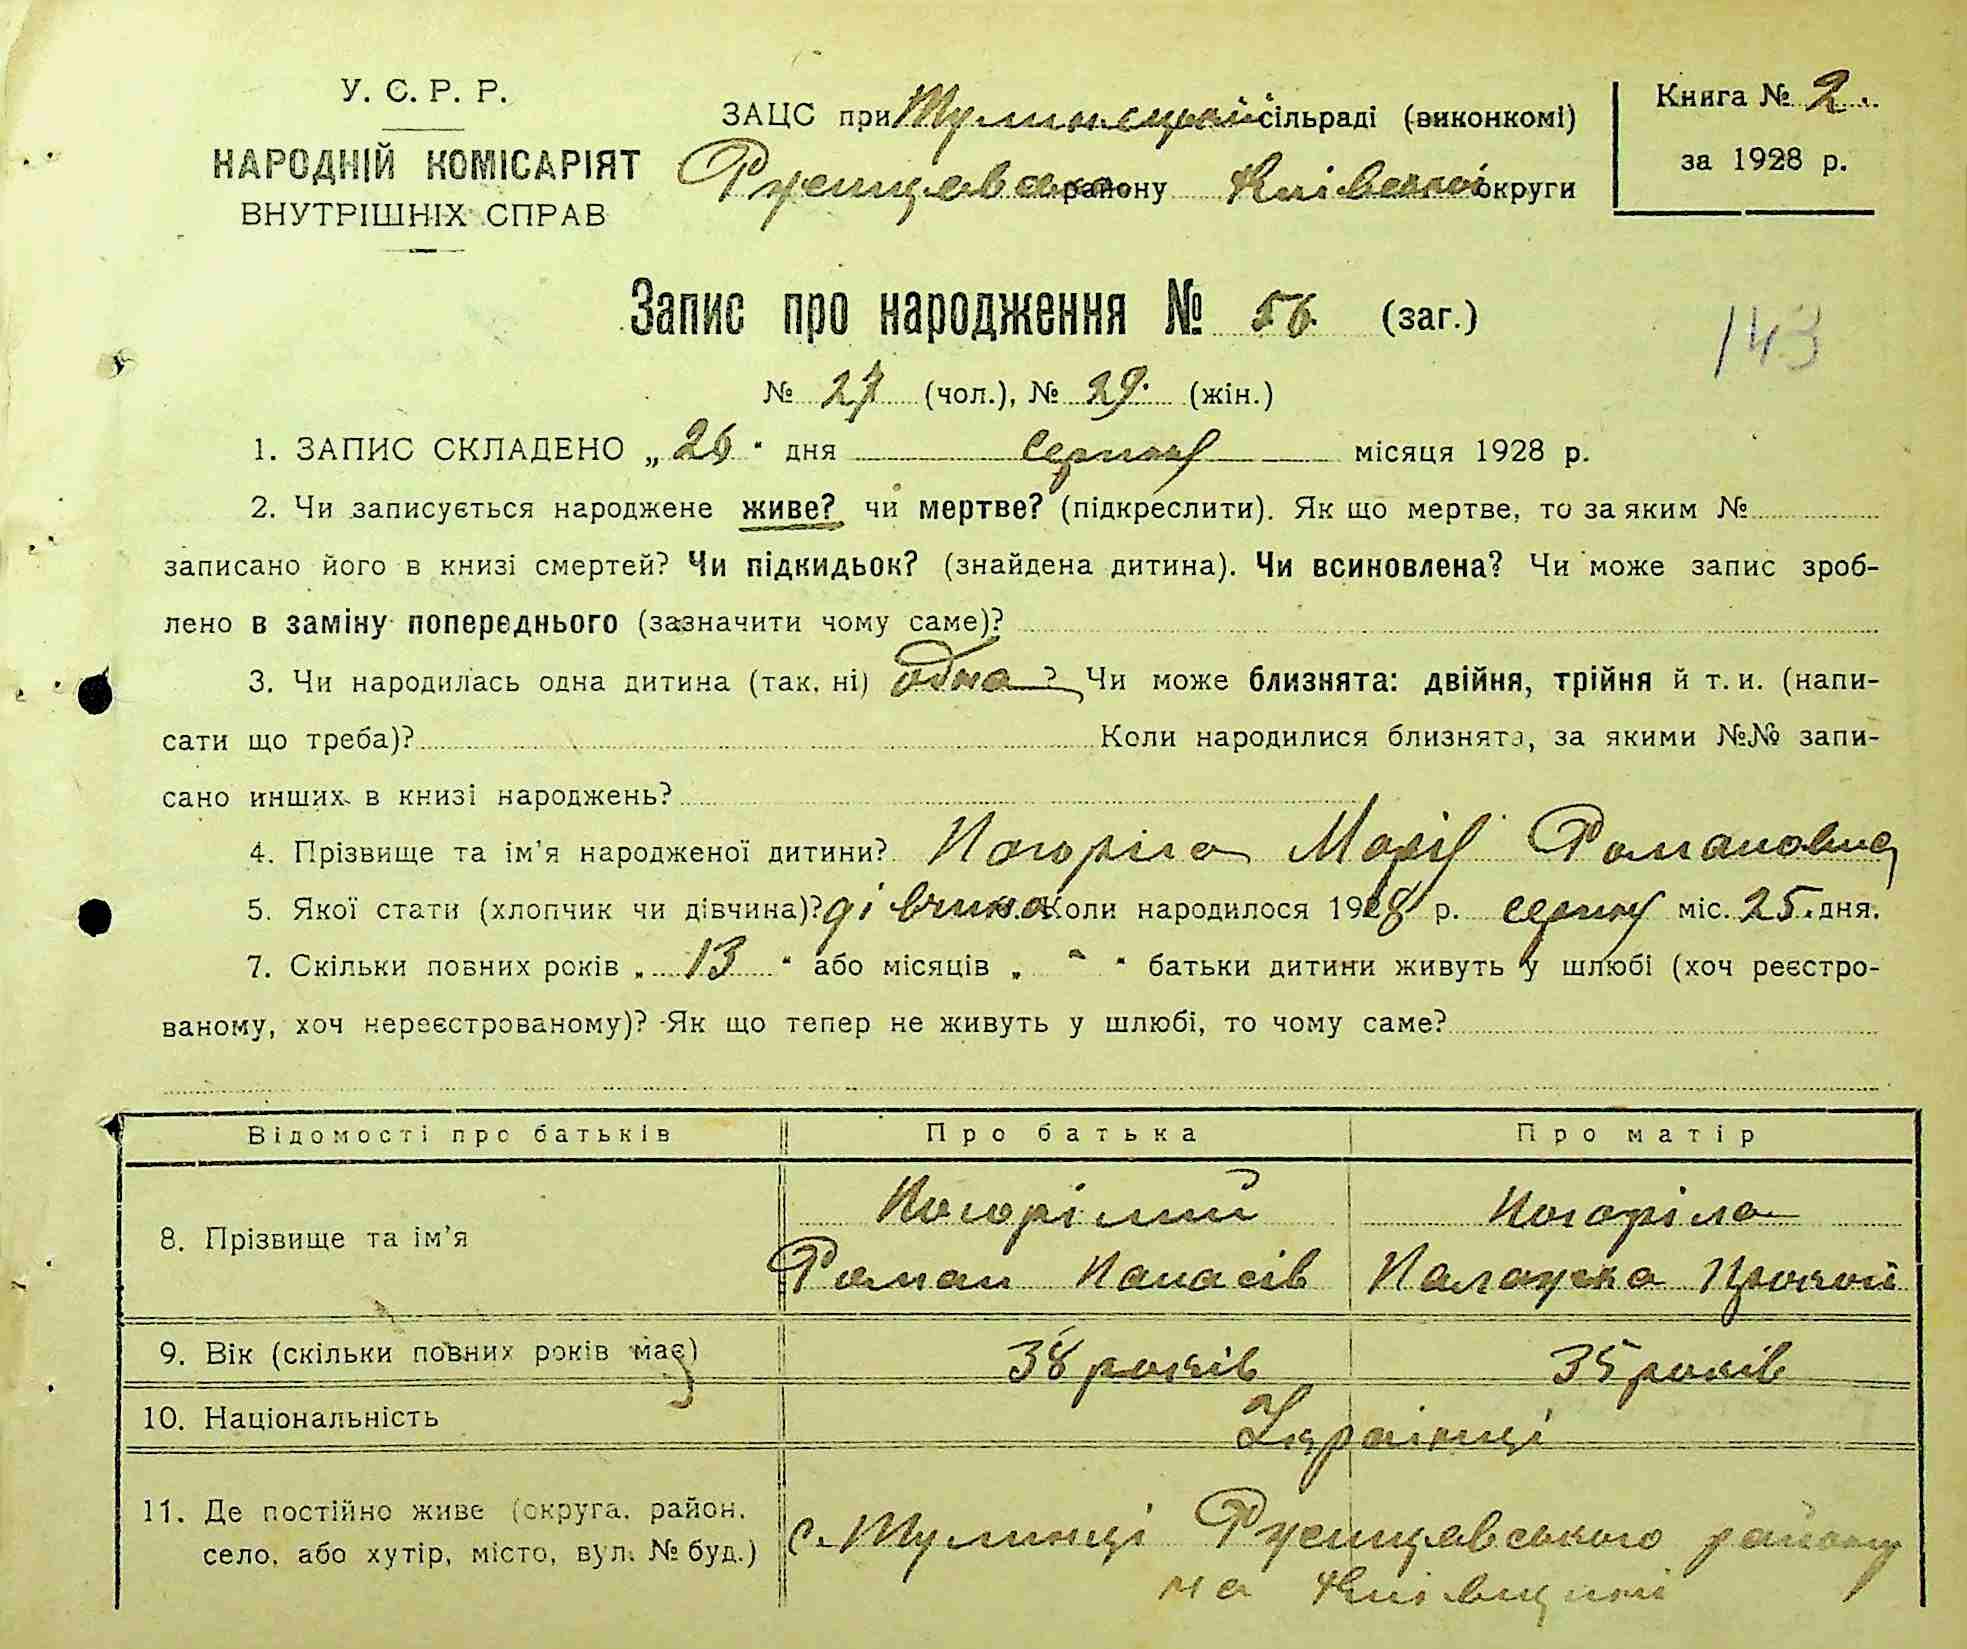 У. С. Р. Р.
НАРОДНІЙ КОМІСАРІЯТ
ВНУТРІШНІХ СПРАВ
ЗАЦС при Тулинецькій сільраді (виконкомі)
району Київської округи
Книга № 2.
за 1928 р.
Запис про народження № 56 (заг.)
143
№ 27 (чол.), № 29. (жін.)
1. ЗАПИС СКЛАДЕНО „26“ дня серпня місяця 1928 р.
2. Чи записується народжене живе? чи мертве? (підкреслити). Як що мертве, то за яким №
записано його в книзі смертей? Чи підкидьок? (знайдена дитина). Чи всиновлена? Чи може запис зроб-
лено в заміну попереднього (зазначити чому саме)?
3. Чи народилась одна дитина (так, ні) одна? Чи може близнята: двійня, трійня й т. и. (напи-
сати що треба)? Коли народилися близнята, за якими №№ запи-
сано инших в книзі народжень?
4. Прізвище та ім'я народженої дитини? Погоріла Марія Романовна
5. Якої стати (хлопчик чи дівчина)? дівчинка Коли народилося 1928 р. серпня міс. 25. дня.
7. Скільки повних років „13“ або місяців „ - “ батьки дитини живуть у шлюбі (хоч реєстро-
ваному, хоч нереєстрованому)? Як що тепер не живуть у шлюбі, то чому саме?
Відомості про батьків Про батька Про матір
8. Прізвище та ім'я
Погорілий Погоріла
Роман Панасів Палажка
9. Вік (скільки повних років має) 38 років 35 років
10. Національність Українці
11. Де постійно живе (округа, район,
село, або хутір, місто, вул. № буд.)
с. Тулинці Ржищевського району
на Київщині